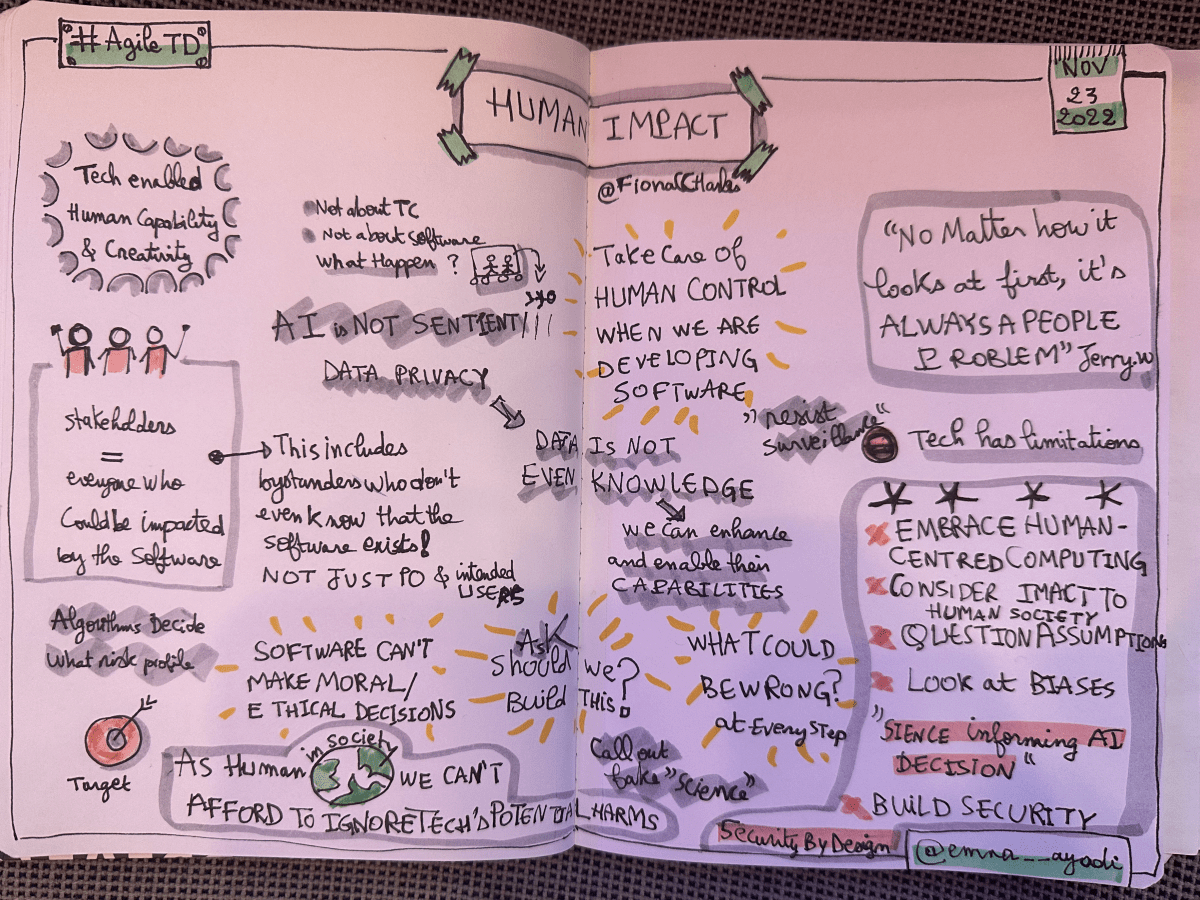 #AgileTD
HUMAN IMPACT
NOV
23
2022
Tech enabled
Human Capability
& Creativity
Not about TC
Not about software
What Happen ?
AI is NOT SENTIENT
DATA PRIVACY
stakeholders
=
everyone who
Could be impacted
by the Software
This includes
bystanders who don't
even know that the
software exists!
NOT JUST PO & intended
USERS
Algorithms Decide
What risk profile
Target
SOFTWARE CAN'T
MAKE MORAL/
ETHICAL DECISIONS
As Human in society WE CAN'T
AFFORD TO IGNORE TECH'S POTENTIAL HARMS
Take Care of
HUMAN CONTROL
WHEN WE ARE
DEVELOPING
SOFTWARE
"resist
surveillance"
DATA IS NOT
EVEN KNOWLEDGE
we can enhance
and enable their
CAPABILITIES
ASK
Should we?
Build THIS!
WHAT COULD
BE WRONG?
at Every Step
Call out
fake "science"
"No Matter how it
looks at first, it's
ALWAYS A PEOPLE
PROBLEM" Jerry.W
Tech has limitations
EMBRACE HUMAN-
CENTRED COMPUTING
CONSIDER IMACT TO
HUMAN SOCIETY
QUESTION ASSUMPTIONS
LOOK at BIASES
"SIENCE informing AI
DECISION"
BUILD SECURITY
Security By Design
@emna__ayadi